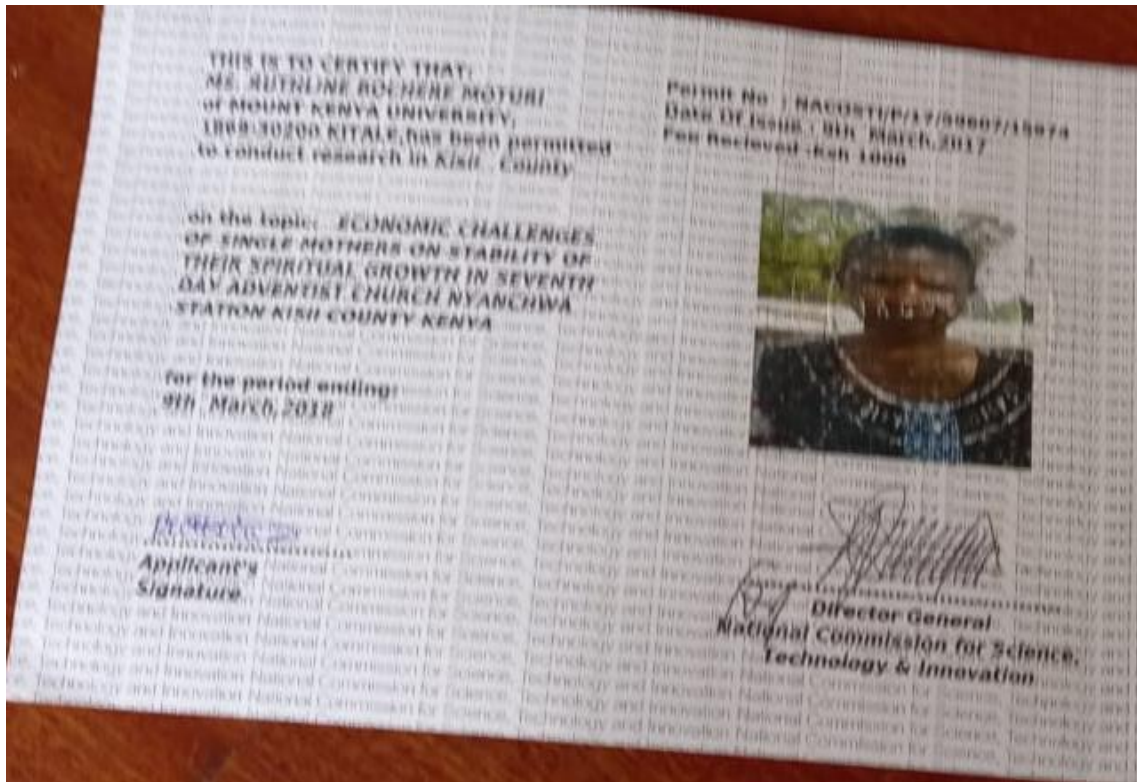 THIS IS TO CERTIFY THAT:
MS. RUTHLINE BOCHERE MOTURI
of MOUNT KENYA UNIVERSITY,
1868-30200 KITALE,has been permitted
to conduct research in Kisii County
on the topic: ECONOMIC CHALLENGES
OF SINGLE MOTHERS ON STABILITY OF
THEIR SPIRITUAL GROWTH IN SEVENTH
DAY ADVENTIST CHURCH NYANCHWA
STATION KISII COUNTY KENYA
for the period ending:
9th March,2018
Applicant's
Signature
Permit No : NACOSTI/P/17/59607/15974
Date Of Issue : 9th March,2017
Fee Recieved :Ksh 1000
Director General
National Commission for Science,
Technology & Innovation